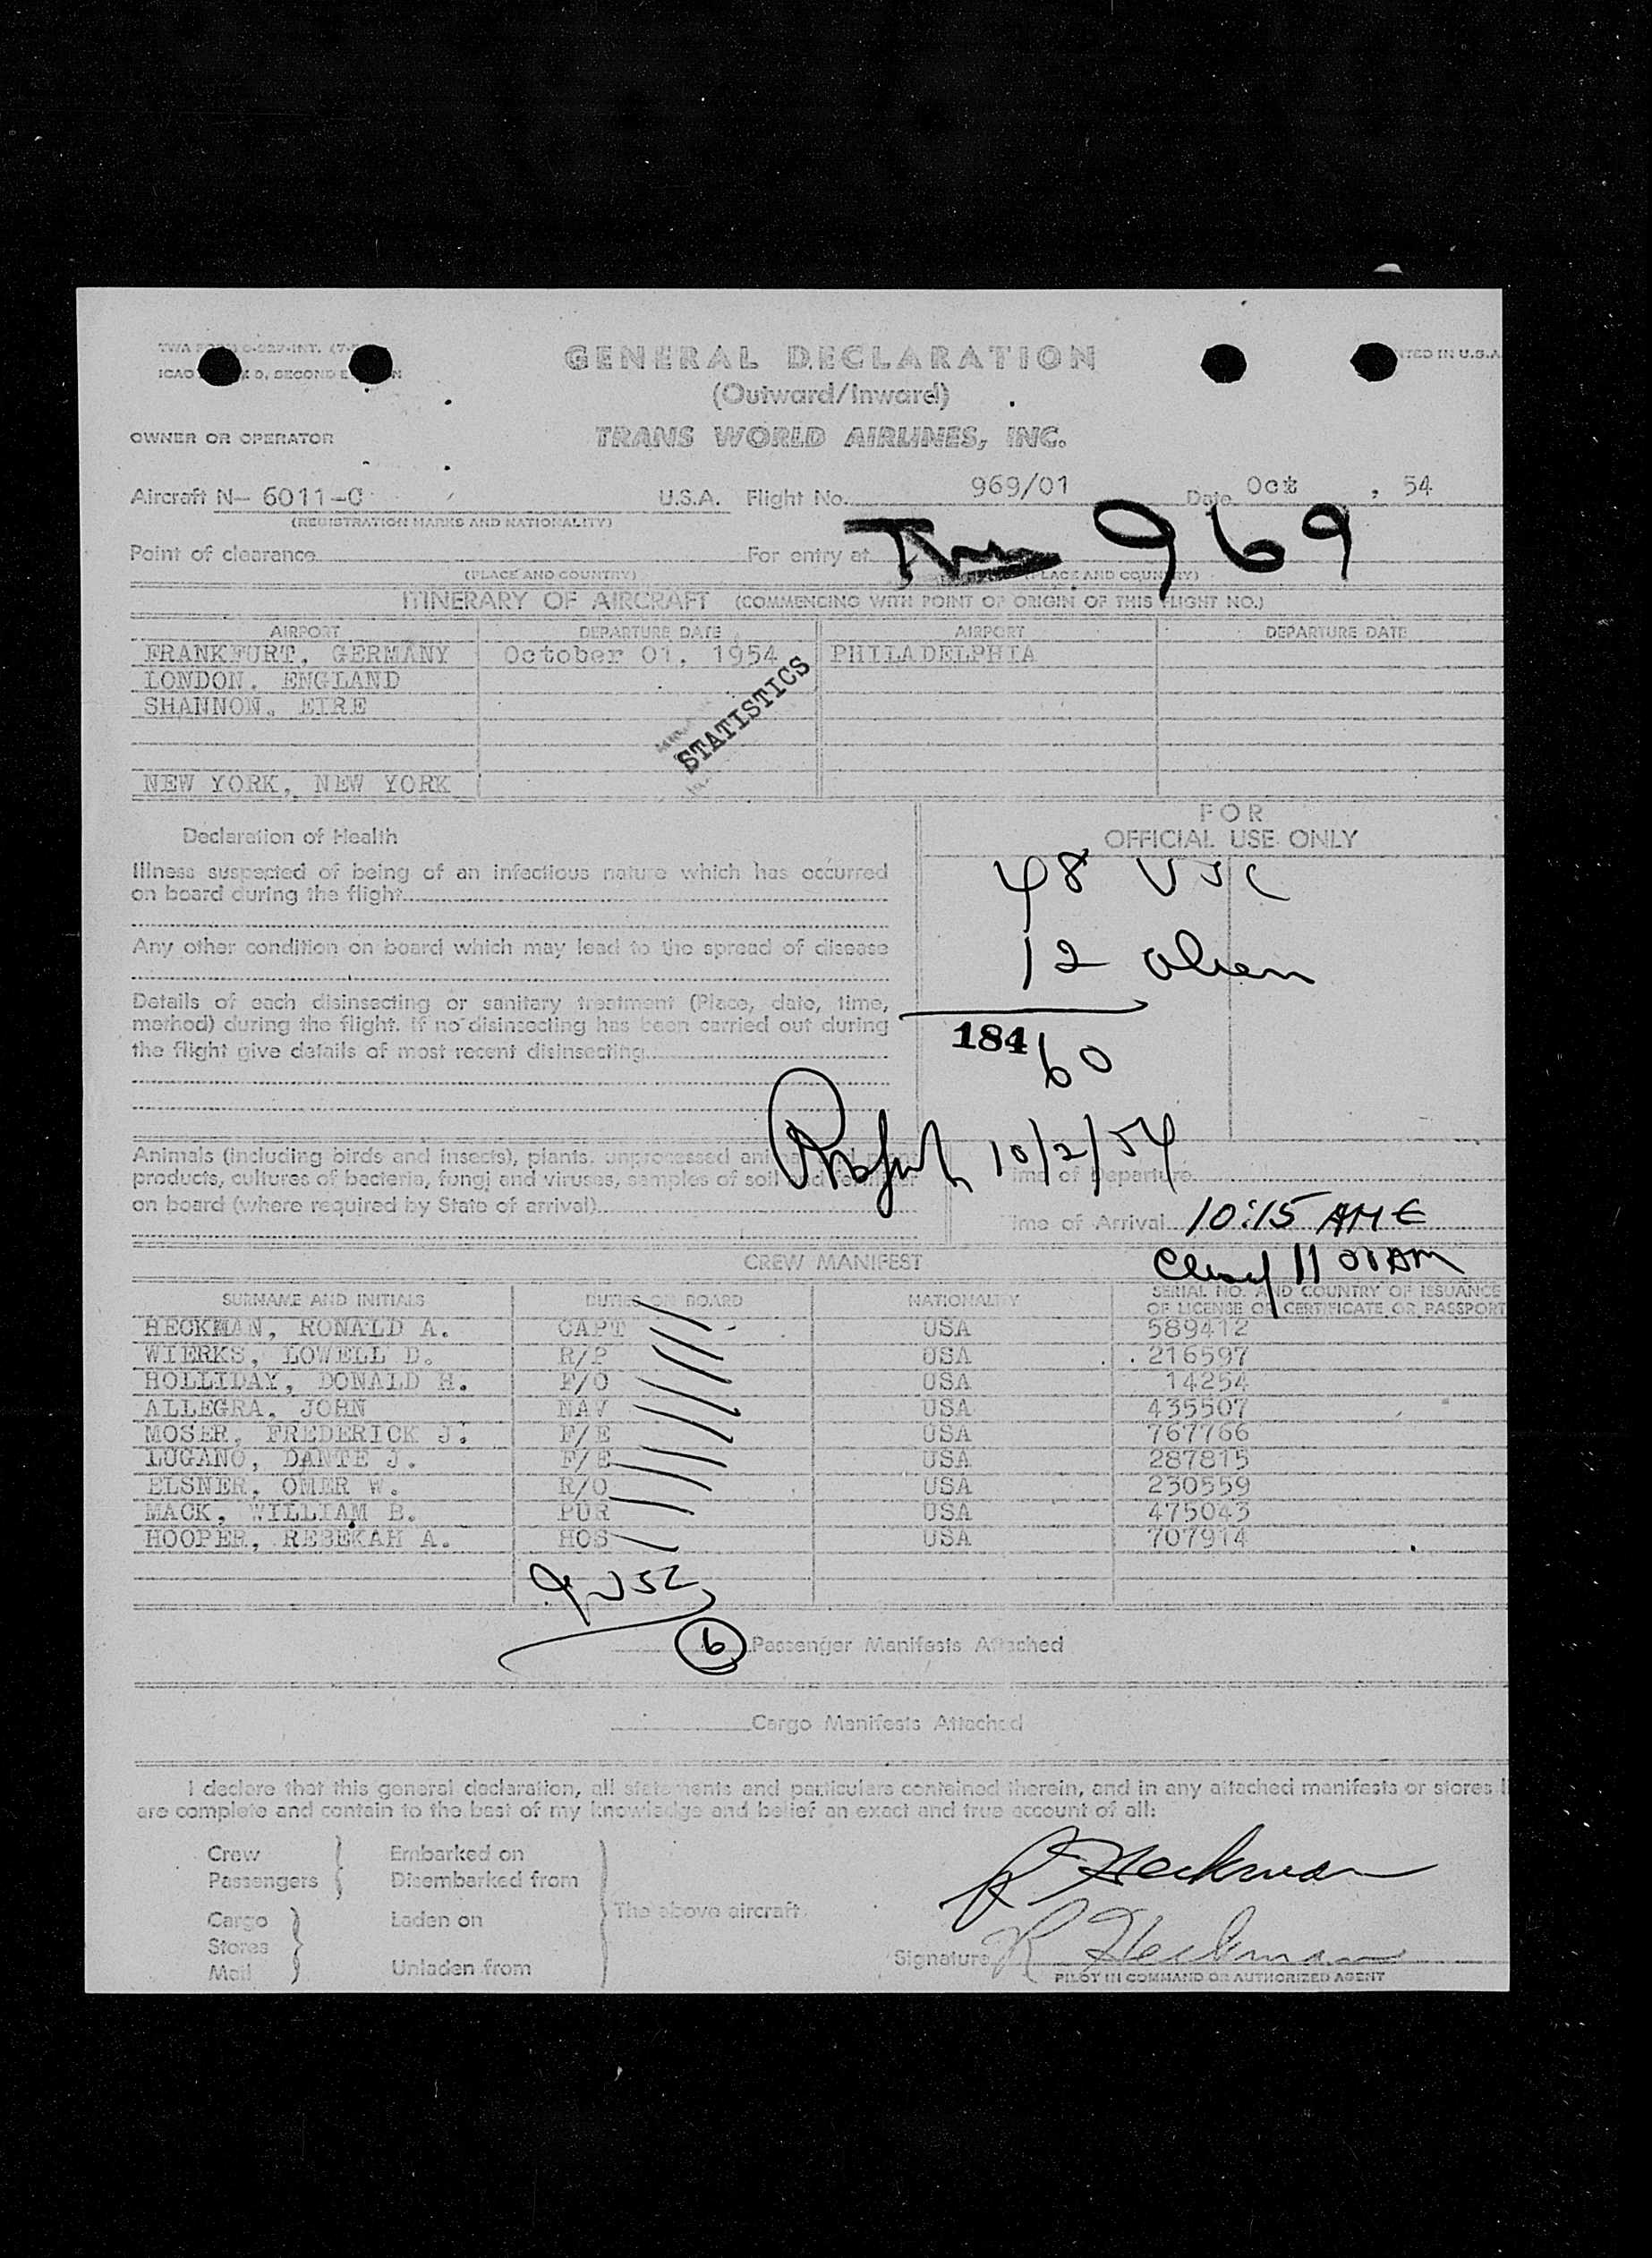 GENERAL DECLARATION
(Outward/Inward)
OWNER OR OPERATOR TRANS WORLD AIRLINES, INC.
Aircraft N- 6011-C U.S.A. Flight No. 969/01 Date Oct , 54
(REGISTRATION MARKS AND NATIONALITY)
Point of clearance For entry at 969
(PLACE AND COUNTRY) (PLACE AND COUNTRY)
ITINERARY OF AIRCRAFT (COMMENCING WITH POINT OF ORIGIN OF THIS FLIGHT NO.)
AIRPORT DEPARTURE DATE AIRPORT DEPARTURE DATE
FRANKFURT, GERMANY October 01, 1954 PHILADELPHIA
LONDON, ENGLAND
SHANNON, EIRE
STATISTICS
NEW YORK, NEW YORK
FOR
OFFICIAL USE ONLY
48 USC
12 alien
184 60
Declaration of Health
Illness suspected of being of an infectious nature which has occurred
on board during the flight
Any other condition on board which may lead to the spread of disease
Details of each disinsecting or sanitary treatment (Place, date, time,
method) during the flight. If no disinsecting has been carried out during
the flight give details of most recent disinsecting
10/2/54
Animals (including birds and insects), plants, unprocessed
products, cultures of bacteria, fungi and viruses, samples of soil
on board (where required by State of arrival)
Time of Departure
Time of Arrival 10:15 AM E
11 00 AM
CREW MANIFEST
SURNAME AND INITIALS DUTIES ON BOARD NATIONALITY SERIAL NO. AND COUNTRY OF ISSUANCE
OF LICENSE OR CERTIFICATE OR PASSPORT
HECKMAN, RONALD A. CAPT USA 589412
WIERKS, LOWELL D. R/P USA 216597
HOLLIDAY, DONALD H. F/O USA 14254
ALLEGRA, JOHN NAV USA 435507
MOSER, FREDERICK J. F/E USA 767766
LUGANO, DANTE J. F/E USA 287815
ELSNER, OMER W. R/O USA 230559
MACK, WILLIAM B. PUR USA 475043
HOOPER, REBEKAH A. HOS USA 707914
9 USC
6 Passenger Manifests Attached
Cargo Manifests Attached
I declare that this general declaration, all statements and particulars contained therein, and in any attached manifests or stores
are complete and contain to the best of my knowledge and belief an exact and true account of all:
Crew Embarked on
Passengers Disembarked from
Cargo Laden on The above aircraft
Stores
Mail Unladen from
R Heckman
Signature R Heckman
PILOT IN COMMAND OR AUTHORIZED AGENT